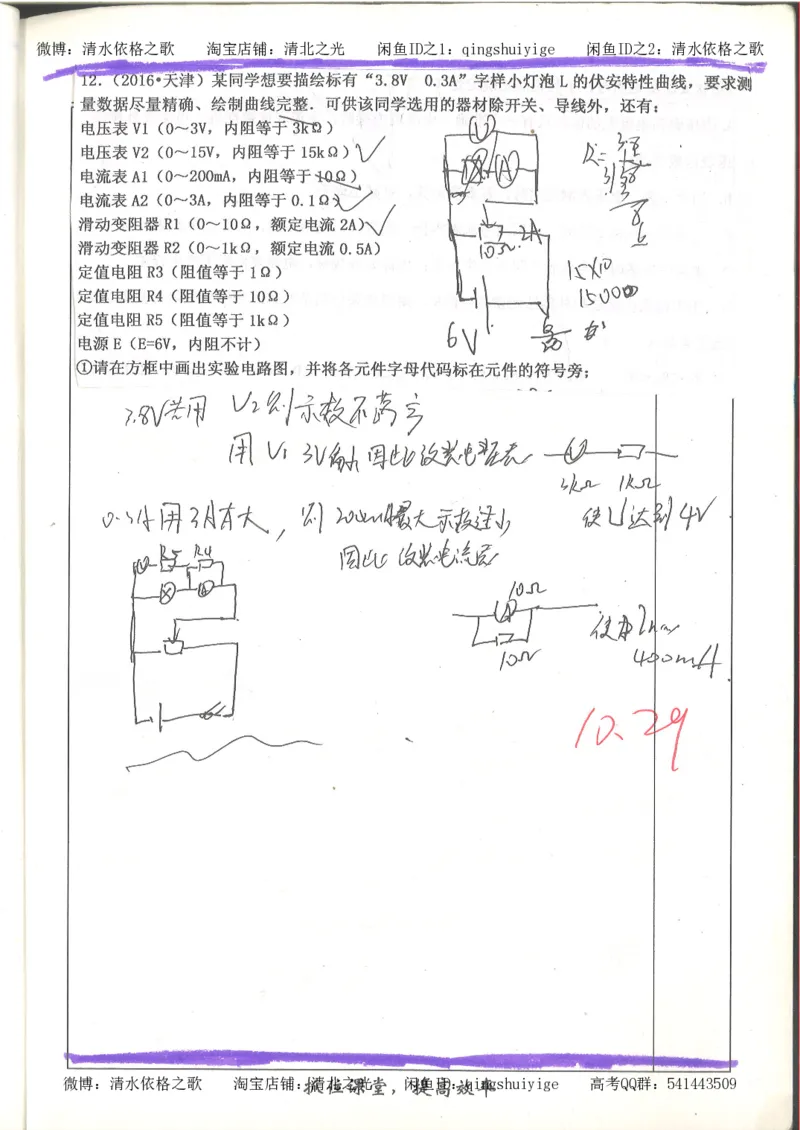 微博：清水依格之歌 淘宝店铺：清北之光 闲鱼ID之1：qingshuiyige 闲鱼ID之2：清水依格之歌
12.（2016•天津）某同学想要描绘标有“3.8V 0.3A”字样小灯泡 L 的伏安特性曲线，要求测
量数据尽量精确、绘制曲线完整．可供该同学选用的器材除开关、导线外，还有：
电压表 V1（0～3V，内阻等于 3kΩ）
电压表 V2（0～15V，内阻等于 15kΩ）
电流表 A1（0～200mA，内阻等于 10Ω）
电流表 A2（0～3A，内阻等于 0.1Ω）
滑动变阻器 R1（0～10Ω，额定电流 2A）
滑动变阻器 R2（0～1kΩ，额定电流 0.5A）
定值电阻 R3（阻值等于 1Ω）
定值电阻 R4（阻值等于 10Ω）
定值电阻 R5（阻值等于 1kΩ）
电源 E（E=6V，内阻不计）
①请在方框中画出实验电路图，并将各元件字母代码标在元件的符号旁；
V
A
2A
10Ω
15X10
15000
6V
3.8V若用 V2则示数不离
用 V1 3V 因此改装电压表
V
3kΩ 1kΩ
使U达到4V
0.3A用3A有大，则200mA 最大示数过小
因此 改装电流表
V R5 R4
A
10Ω
10Ω
400mA
10.29
微博：清水依格之歌 淘宝店铺：清北之光 闲鱼ID之1：qingshuiyige 高考QQ群：541443509
抓住课堂，提高效率